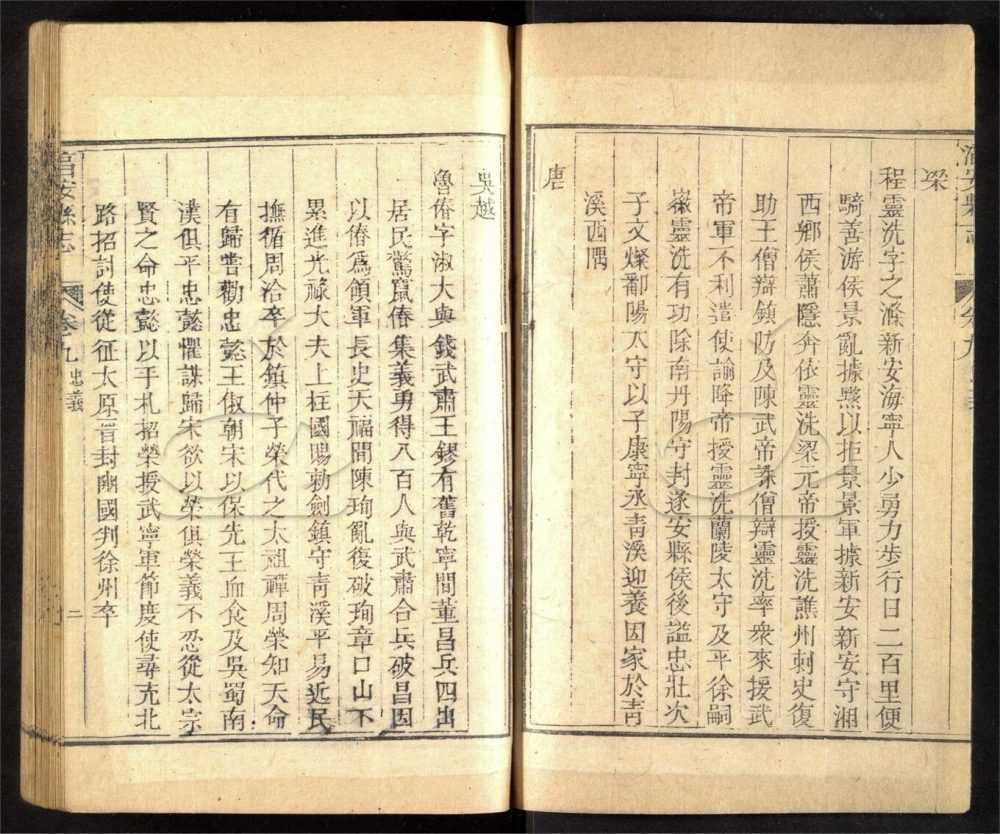 梁
程靈洗字之滌新安海寧人少勇力步行日二百里便
騎善游侯景亂據黟以拒景景軍據新安新安守湘
西鄉侯蕭隱奔依靈洗梁元帝授靈洗譙州刺史復
助王僧辯鎮防及陳武帝誅僧辯靈洗率衆來援武
帝軍不利遣使諭降帝授靈洗蘭陵太守及平徐嗣
徽靈洗有功除南丹陽守封遂安縣侯後謚忠壯次
子文燦鄱陽太守以子康寧丞青溪迎養因家於青
溪西隅
唐
吳越
魯偆字淑大與錢武肅王鏐有舊乾寧間董昌兵四出
居民驚竄偆集義勇得八百人與武肅合兵破昌因
以偆爲領軍長史天福間陳珣亂復破珣章口山下
累進光祿大夫上柱國賜勅劍鎮守青溪平易近民
撫循周洽卒於鎮仲子榮代之太祖禪周榮知天命
有歸嘗勸忠懿王俶朝宋以保先王血食及吳蜀南
漢俱平忠懿懼謀歸宋欲以榮俱榮義不忍從太宗
賢之命忠懿以手札招榮授武寧軍節度使尋充北
路招討使從征太原晉封豳國判徐州卒
安縣志
卷九
忠義
二